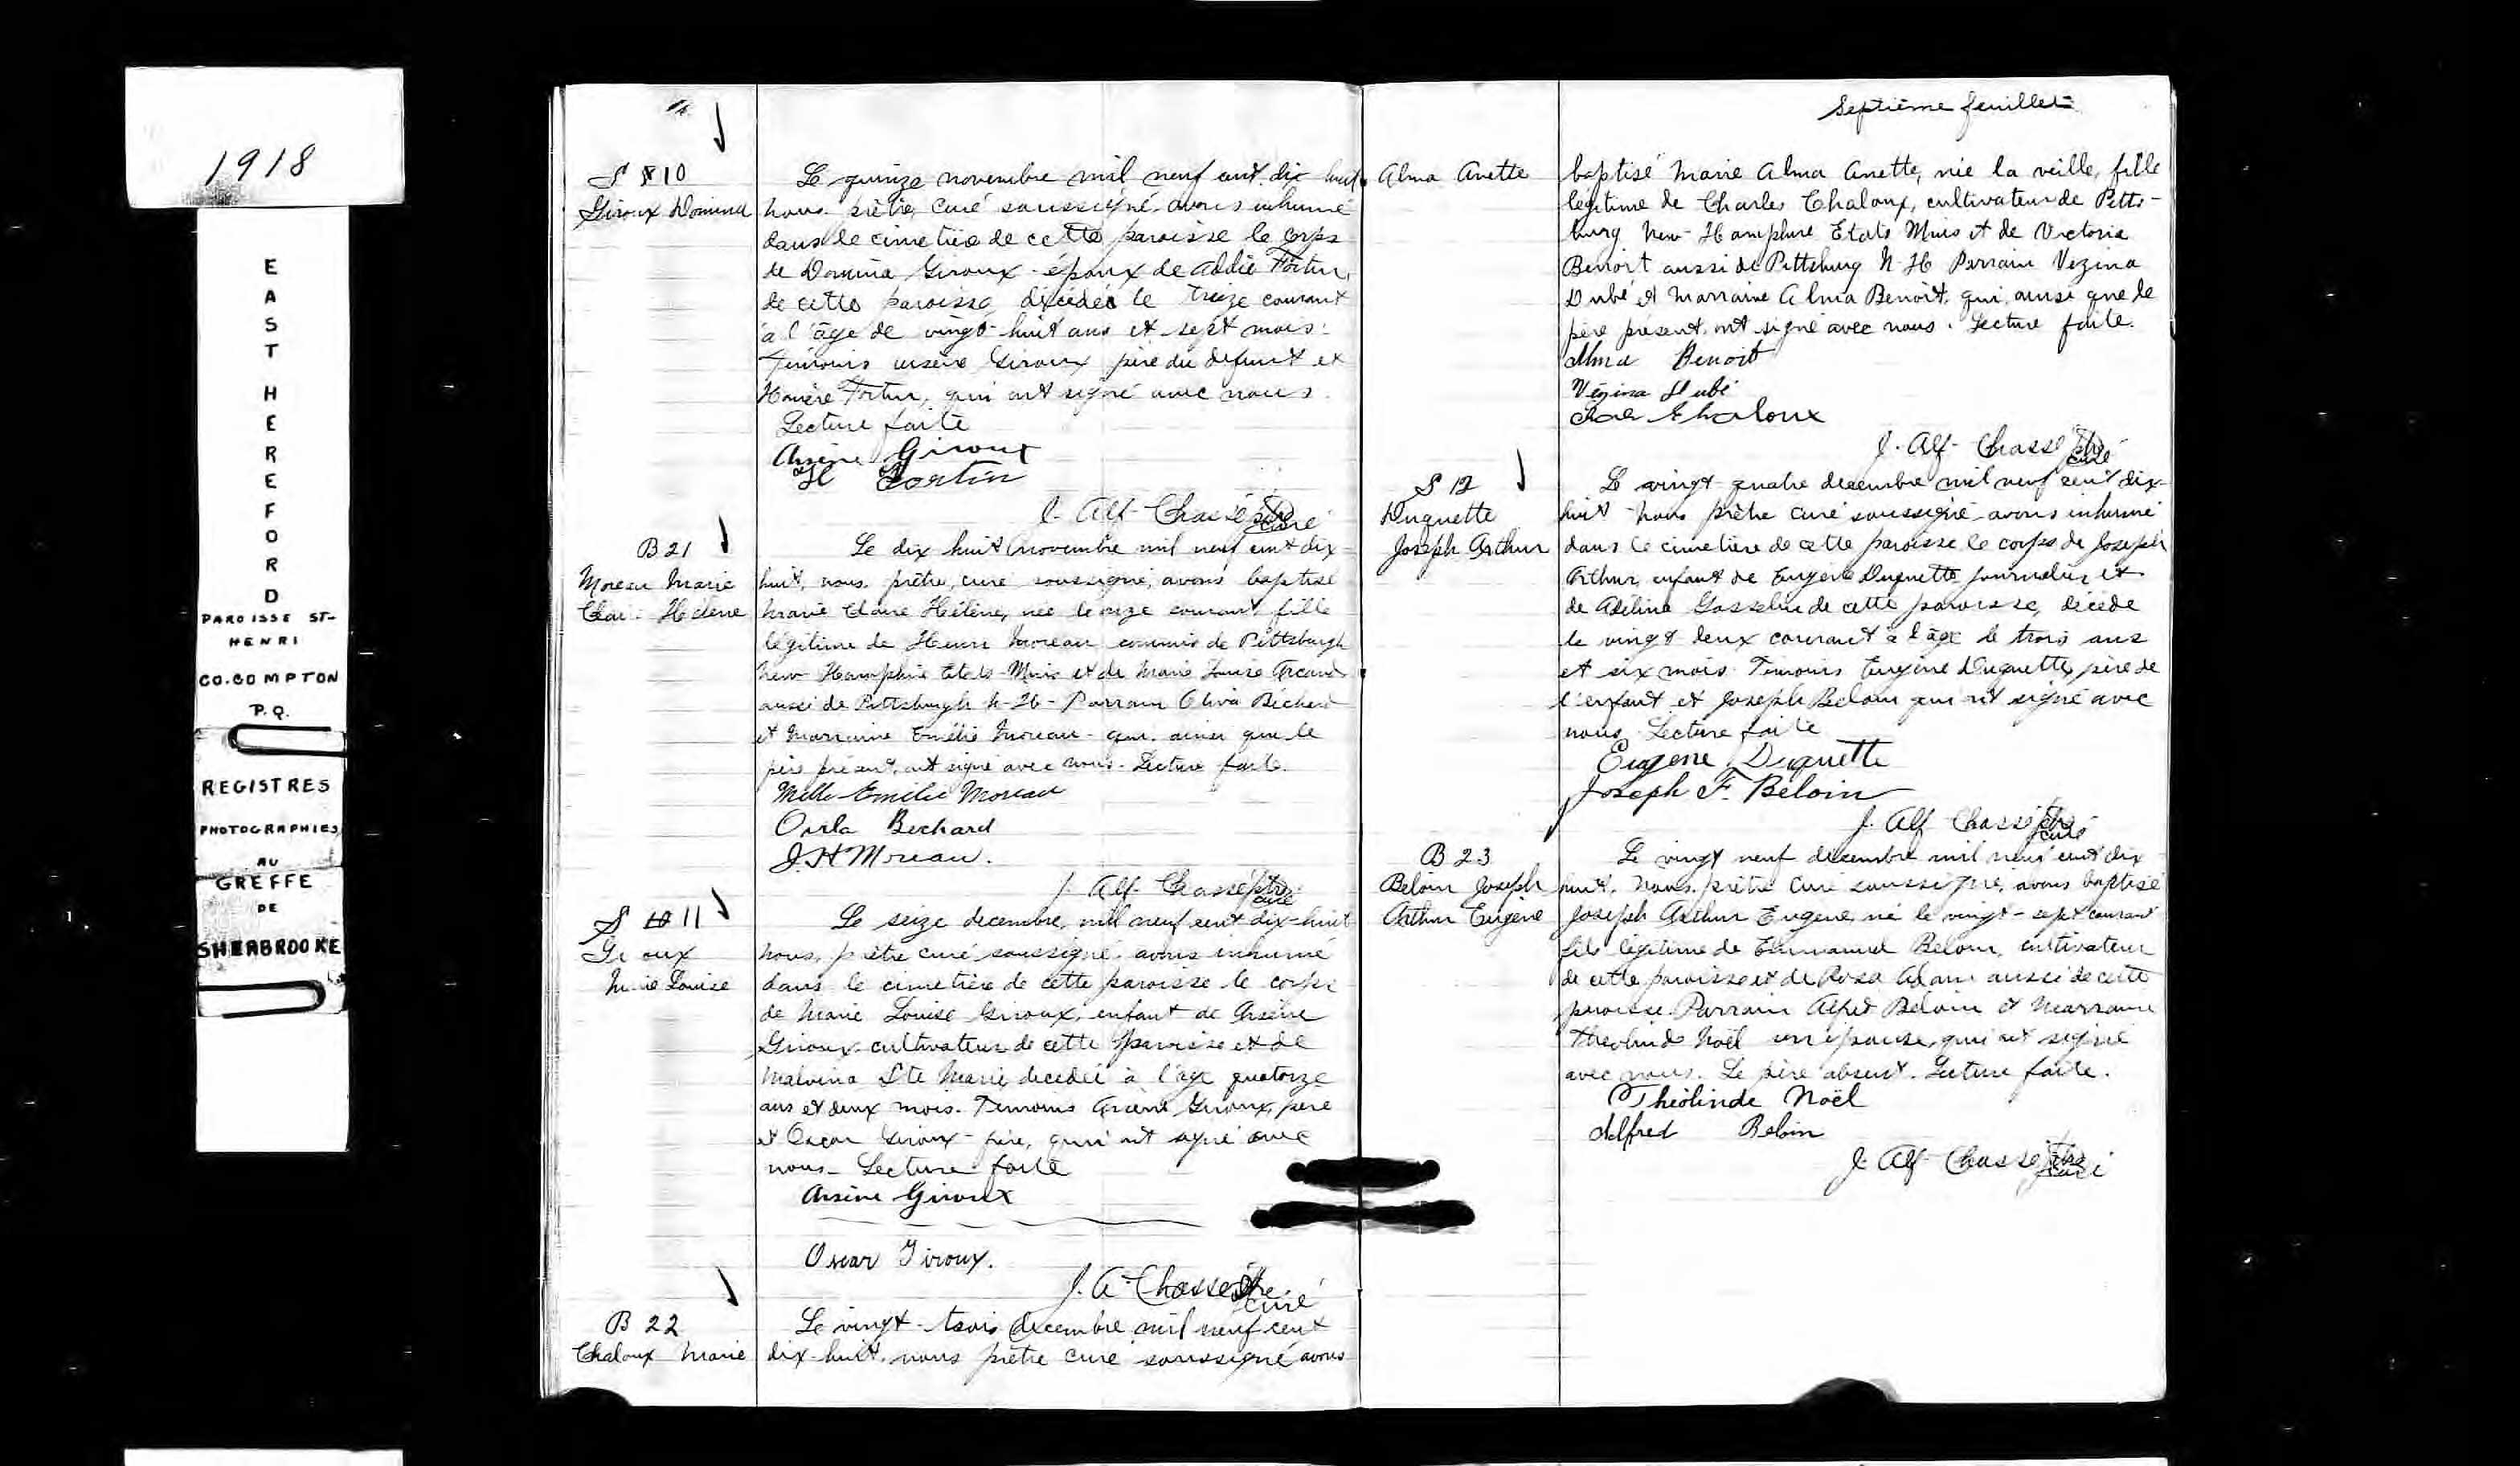 1918
EAST HEREFORD
PAROISSE ST-
HENRI
CO. COMPTON
P.Q.
REGISTRES
PHOTOGRAPHIES
AU
GREFFE
DE
SHERBROOKE
S 10
Giroux Domina
Le quinze novembre mil neuf cent dix huit
nous prêtre curé soussigné avons inhumé
dans le cimetière de cette paroisse le corps
de Domina Giroux époux de Addie Fortin
de cette paroisse, décédé le treize courant
à l'âge de vingt-huit ans et sept mois.
Témoins Giroux père du défunt et
Fortin, qui ont signé avec nous.
Lecture faite
Arsène Giroux
H Fortin
J. Alf. Chassé ptre
curé
B 21
Moreau Marie
Hélène
Le dix huit novembre mil neuf cent dix-
huit, nous, prêtre, curé soussigné, avons baptisé
Marie Claire Hélène, née le onze courant, fille
légitime de Henri Moreau commis de Pittsburgh
New Hamphire Etats-Unis et de Marie Louise
aussi de Pittsburgh N-H- Parrain Béchard
et Marraine Emélie Moreau - qui, ainsi que le
père présent, ont signé avec nous. Lecture faite.
Melle Emelie Moreau
Bechard
J. H Moreau.
J. Alf. Chassé ptre
curé
S 10 11
Giroux
Marie Louise
Le seize decembre, mil neuf cent dix-huit
nous, prêtre curé soussigné avons inhumé
dans le cimetière de cette paroisse le corps
de Marie Louise Giroux, enfant de Arsène
Giroux cultivateur de cette paroisse et de
Malvina Ste Marie decedée à l'age quatorze
ans et deux mois. Temoins Arsène Giroux, père
et Oscar Giroux - frère, qui ont signé avec
nous - Lecture faite
Arsène Giroux
Oscar Giroux.
J. A. Chassé ptre
curé
B 22
Chaloux Marie
Le vingt-trois decembre mil neuf cent
dix-huit, nous prêtre curé soussigné avons
Septième feuillet
Alma Anette
baptisé Marie Alma Anette, née la veille, fille
légitime de Charles Chaloux, cultivateur de Pitts-
burg New-Hamphire Etats Unis et de Victoria
Benoit aussi de Pittsburg N-H Parrain Vezina
Dubé et Marraine Alma Benoit, qui, ainsi que le
père présent, ont signé avec nous. Lecture faite.
Alma Benoit
Vézina Dubé
Chaloux
J. Alf. Chassé ptre
curé
S 12
Duquette
Joseph Arthur
Le vingt-quatre decembre mil neuf cent dix-
huit nous prêtre curé soussigné avons inhumé
dans le cimetière de cette paroisse le corps de Joseph
Arthur, enfant de Eugène Duquette journalier et
de Adélina Gosselin de cette paroisse, décédé
le vingt-deux courant à l'âge de trois ans
et six mois. Temoins Eugène Duquette, père de
l'enfant et Joseph Beloin qui ont signé avec
nous. Lecture faite
Eugene Duquette
Joseph F. Beloin
J. Alf Chassé ptre
curé
B 23
Beloin Joseph
Arthur Eugène
Le vingt neuf decembre mil neuf cent dix
huit, nous, prêtre curé soussigné, avons baptisé
Joseph Arthur Eugene, né le vingt-sept courant
fils légitime de Emmanuel Beloin, cultivateur
de cette paroisse et de Rosa Adam aussi de cette
paroisse. Parrain Alfred Beloin et Marraine
Theolinde Noël son épouse, qui ont signé
avec nous. Le père absent. Lecture faite.
Théolinde Noël
Alfred Beloin
J. Alf. Chassé ptre
curé